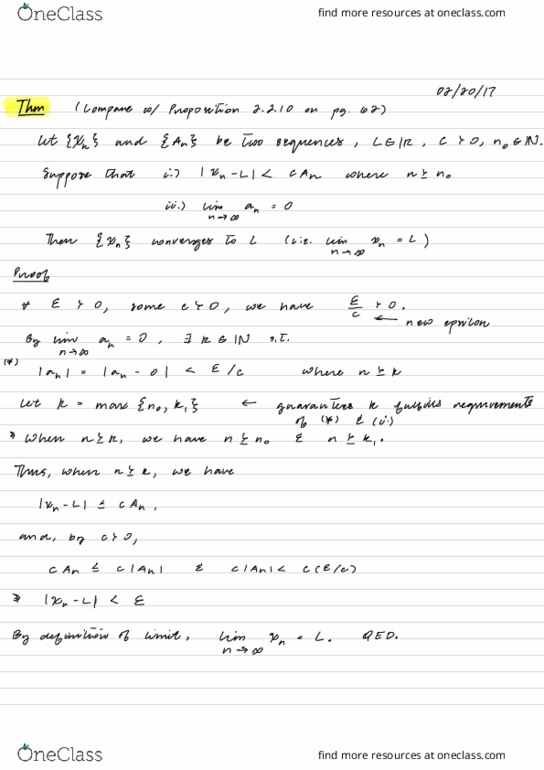 OneClass
find more resources at oneclass.com
02/20/17
Thm (Compare w/ Proposition 2.2.10 on pg. 62)
Let {xn} and {An} be two sequences, L∈ℝ, c > 0, n₀∈ℕ.
Suppose that i.) |xn-L| < cAn where n≥n₀
ii.) lim n→∞ an = 0
Then {xn} converges to L (i.e. lim n→∞ xn = L)
Proof
∀ ε > 0, some c > 0, we have ε/c > 0.
← new epsilon
By lim n→∞ an = 0, ∃ k∈ℕ s.t.
(*) |an| = |an - 0| < ε/c where n≥k
Let k = max {n₀, k₁} ← guarantees k fulfills requirements
of (*) & (i.)
⇒ When n≥k, we have n≥n₀ & n≥k₁.
Thus, when n≥k, we have
|xn-L| ≤ cAn,
and, by c>0,
cAn ≤ c|An| & c|An| < c(ε/c)
⇒ |xn-L| < ε
By definition of limit, lim n→∞ xn = L. QED.
OneClass
find more resources at oneclass.com